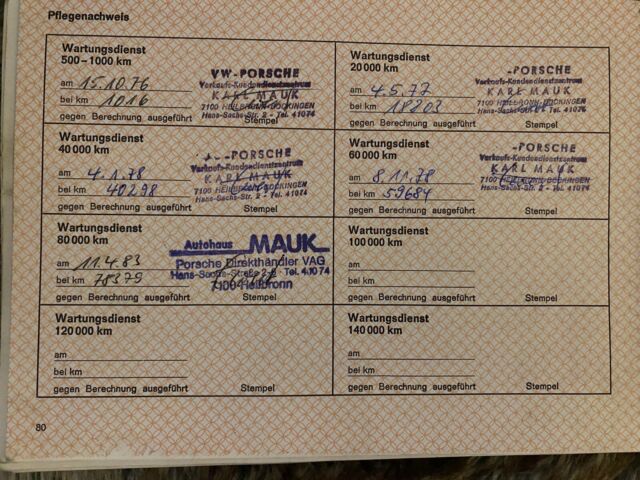 Pflegenachweis
Wartungsdienst
500–1000 km
am 15.10.76
bei km 1016
gegen Berechnung ausgeführt Stempel
VW-PORSCHE
Verkaufs-Kundendienstzentrum
KARL MAUK
7100 HEILBRONN-BÖCKINGEN
Hans-Sachs-Str. 2 - Tel. 41074
Wartungsdienst
20 000 km
am 4.5.77
bei km 18203
gegen Berechnung ausgeführt Stempel
-PORSCHE
Verkaufs-Kundendienstzentrum
KARL MAUK
7100 HEILBRONN-BÖCKINGEN
Hans-Sachs-Str. 2 - Tel. 41074
Wartungsdienst
40 000 km
am 4.1.78
bei km 40298
gegen Berechnung ausgeführt Stempel
-PORSCHE
Verkaufs-Kundendienstzentrum
KARL MAUK
7100 HEILBRONN-BÖCKINGEN
Hans-Sachs-Str. 2 - Tel. 41074
Wartungsdienst
60 000 km
am 8.11.78
bei km 59684
gegen Berechnung ausgeführt Stempel
-PORSCHE
Verkaufs-Kundendienstzentrum
KARL MAUK
7100 HEILBRONN-BÖCKINGEN
Hans-Sachs-Str. 2 - Tel. 41074
Wartungsdienst
80 000 km
am 11.4.83
bei km 78379
gegen Berechnung ausgeführt Stempel
Autohaus MAUK
Porsche Direkthändler VAG
Hans-Sachs-Straße 2 Tel. 41074
7100 Heilbronn
Wartungsdienst
100 000 km
am
bei km
gegen Berechnung ausgeführt Stempel
Wartungsdienst
120 000 km
am
bei km
gegen Berechnung ausgeführt Stempel
Wartungsdienst
140 000 km
am
bei km
gegen Berechnung ausgeführt Stempel
80